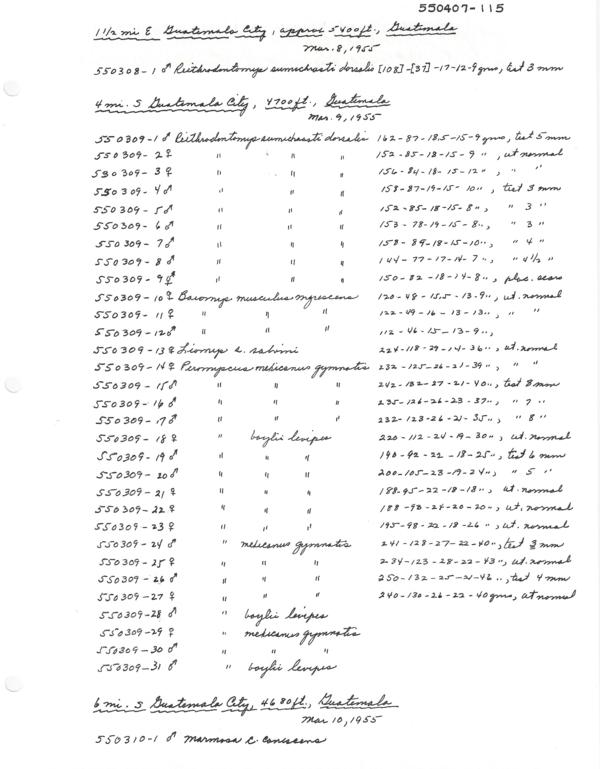 550407-115
1 1/2 mi E Guatemala City, approx 5400ft., Guatemala
Mar. 8, 1955
550308-1 ♂ Reithrodontomys sumichrasti dorsalis [108]-[37]-17-12-9 gms, test 3 mm
4 mi. S Guatemala City, 4700ft., Guatemala
Mar. 9, 1955
550309-1 ♂ Reithrodontomys sumichrasti dorsalis 162-87-18.5-15-9 gms, test 5 mm
550309-2 ♀ " " " 152-85-18-15-9 ", ut normal
550309-3 ♀ " " " 156-84-18-15-12 ", " "
550309-4 ♂ " " " 158-87-19-15-10 ", test 3 mm
550309-5 ♂ " " " 152-85-18-15-8 ", " 3 "
550309-6 ♂ " " " 153-78-19-15-8 ", " 3 "
550309-7 ♂ " " " 158-89-18-15-10 ", " 4 "
550309-8 ♂ " " " 144-77-17-14-7 ", " 4 1/2 "
550309-9 ♀ " " " 150-82-18-14-8 ", plac. scars
550309-10 ♀ Baiomys musculus nigrescens 120-48-15.5-13-9 ", ut. normal
550309-11 ♀ " " " 122-49-16-13-13 ", " "
550309-12 ♂ " " " 112-46-15-13-9 ",
550309-13 ♀ Liomys s. salvini 224-118-29-14-36 ", ut. normal
550309-14 ♀ Peromyscus mexicanus gymnotis 232-125-26-21-39 ", " "
550309-15 ♂ " " " 242-132-27-21-40 ", test 8 mm
550309-16 ♂ " " " 235-126-26-23-37 ", " 7 "
550309-17 ♂ " " " 232-123-26-21-35 ", " 8 "
550309-18 ♀ " boylii levipes 220-112-24-19-30 ", ut. normal
550309-19 ♂ " " " 190-92-22-18-25 ", test 6 mm
550309-20 ♂ " " " 200-105-23-19-24 ", " 5 "
550309-21 ♀ " " " 188-95-22-18-18 ", ut. normal
550309-22 ♀ " " " 188-98-24-20-20 ", ut. normal
550309-23 ♀ " " " 195-98-22-18-26 ", ut. normal
550309-24 ♂ " mexicanus gymnotis 241-128-27-22-40 ", test 3 mm
550309-25 ♀ " " " 234-123-28-22-43 ", ut. normal
550309-26 ♂ " " " 250-132-25-21-46 ", test 4 mm
550309-27 ♀ " " " 240-130-26-22-40 gms, ut normal
550309-28 ♂ " boylii levipes
550309-29 ♀ " mexicanus gymnotis
550309-30 ♂ " " "
550309-31 ♂ " boylii levipes
6 mi. S Guatemala City, 4680ft., Guatemala
Mar 10, 1955
550310-1 ♂ Marmosa c. canescens